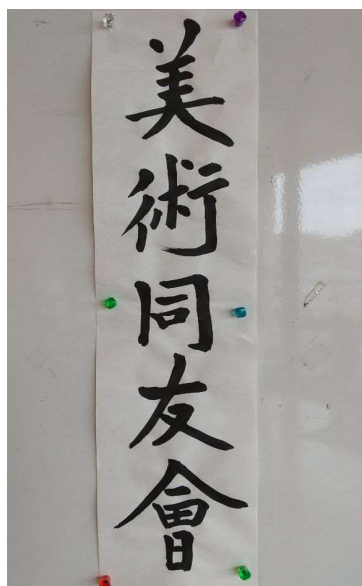 美術同友會